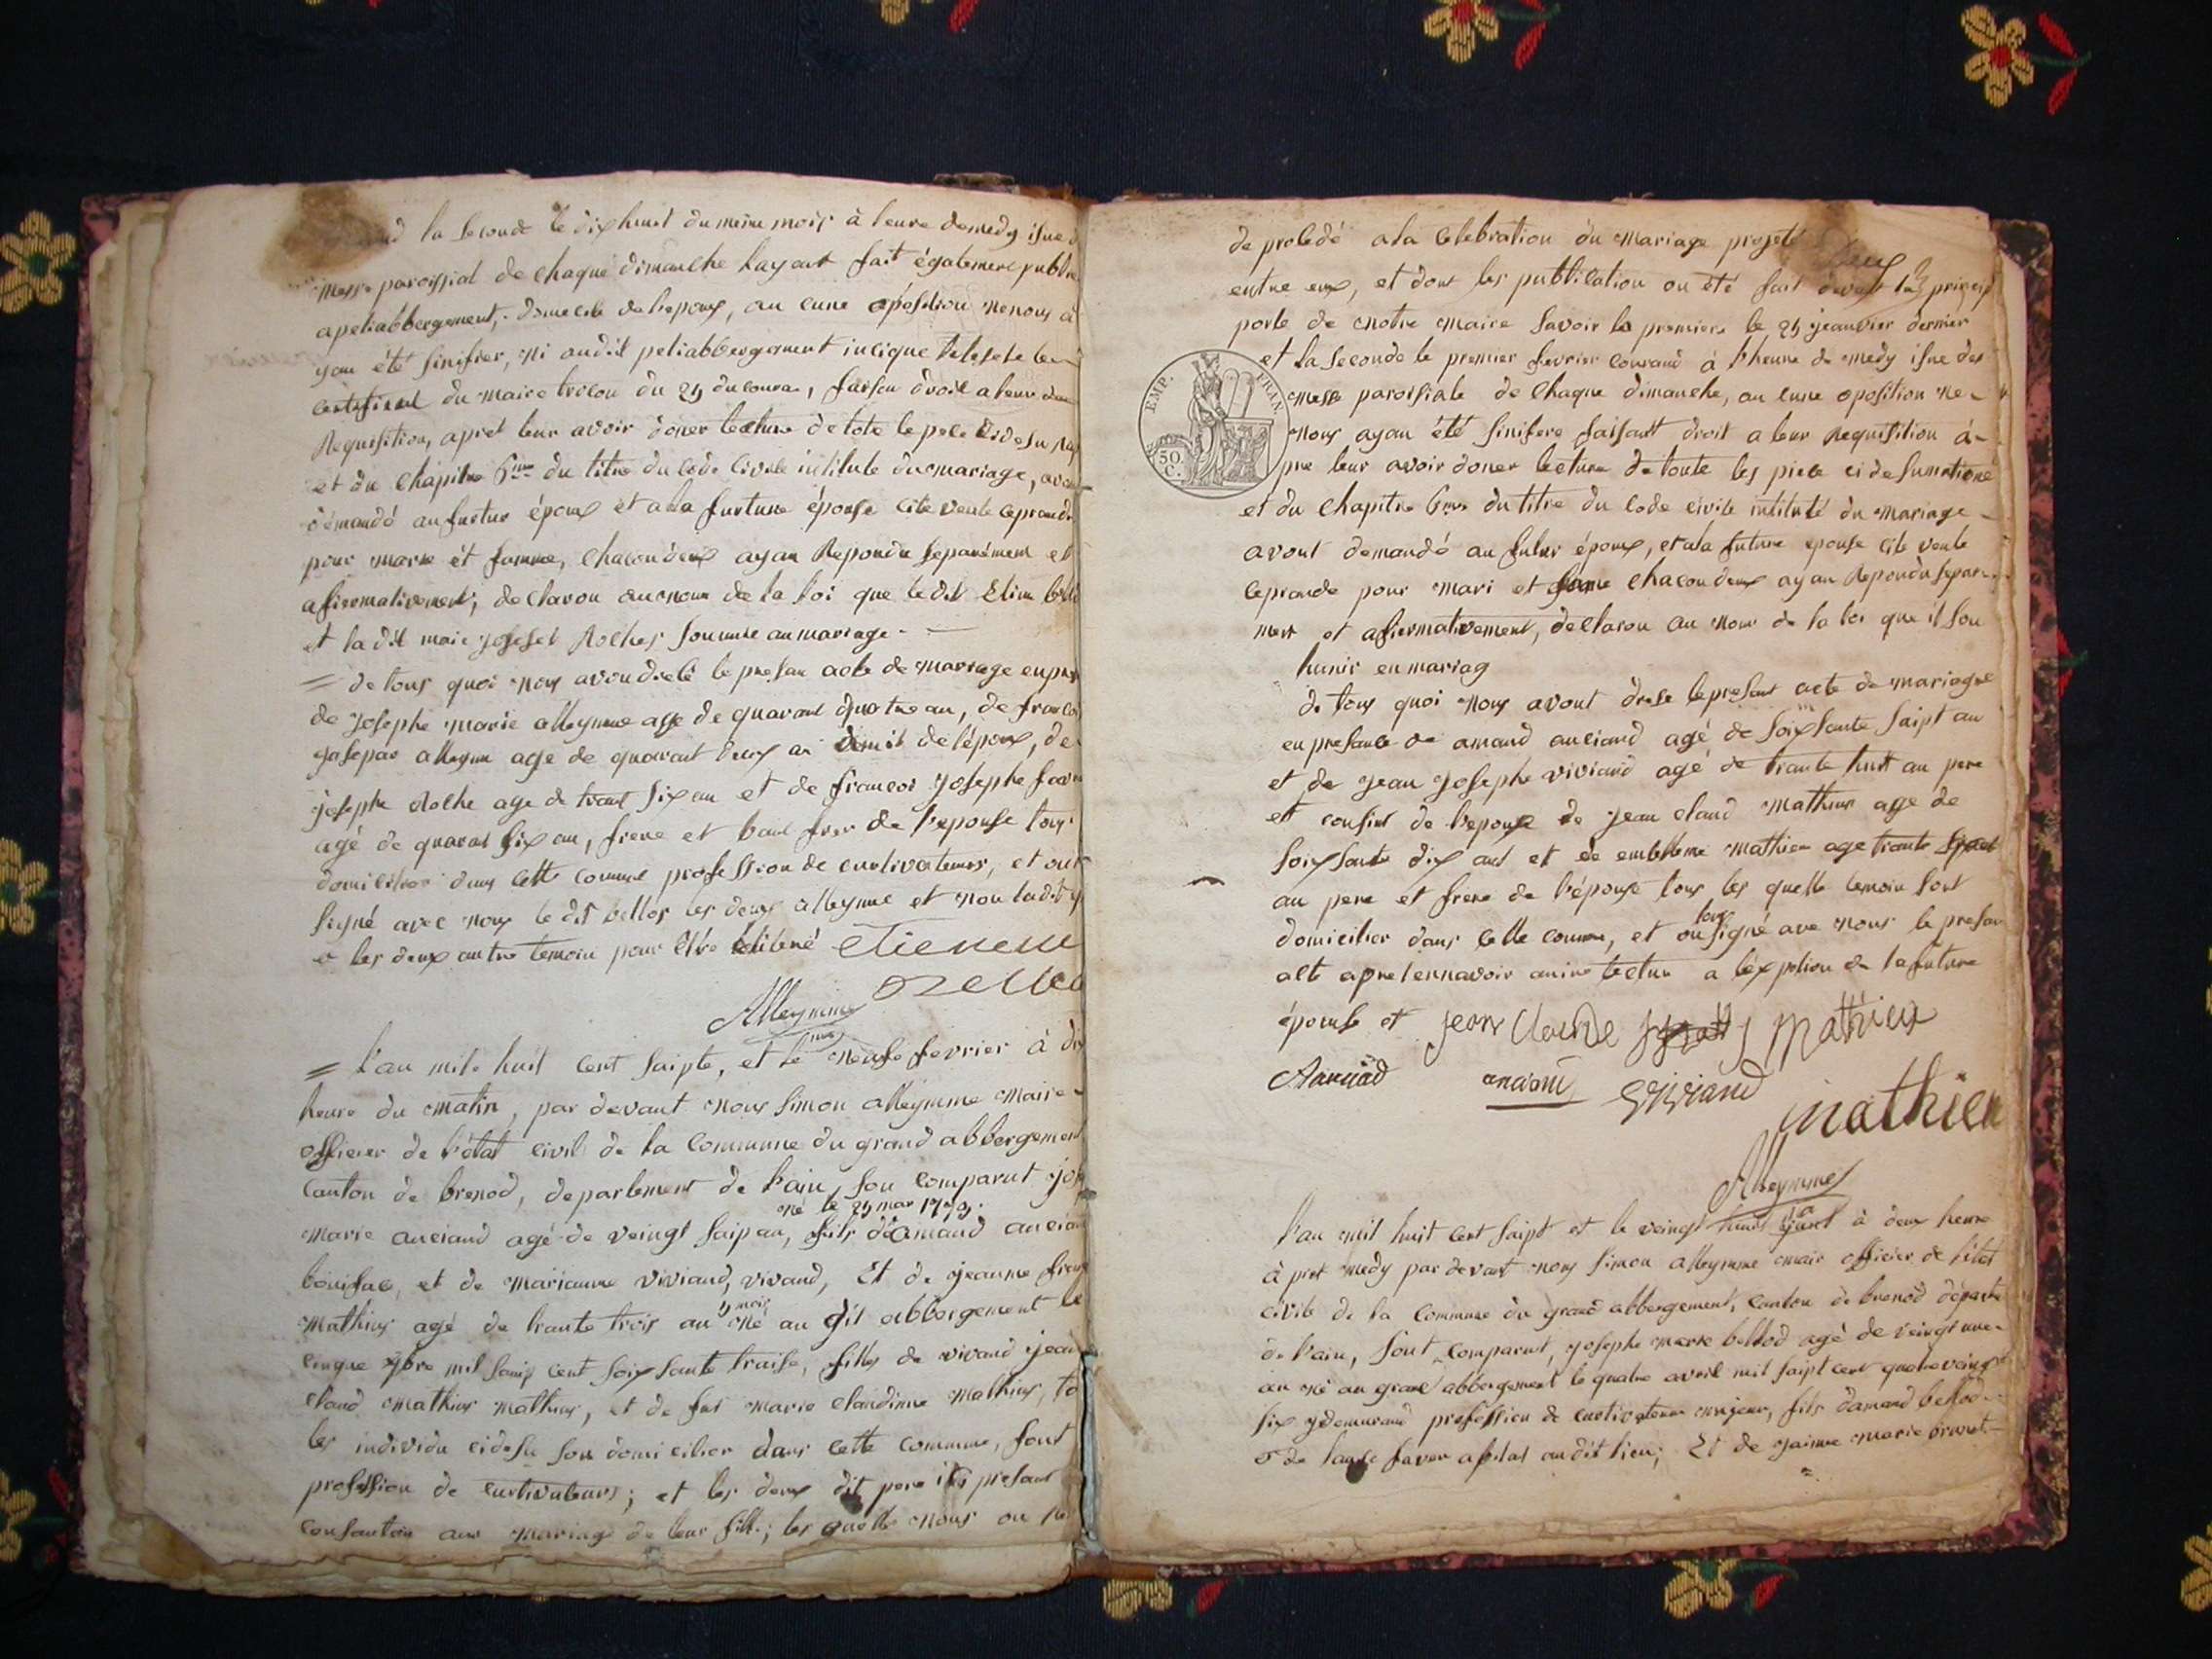 la seconde le dix huit du même mois à leure de medy isue d
messe paroissial de chaque dimanche layant fait égalemens publi
apetiabbergement, domecile de lepoux, au cune oposition ne nous a
yan été sinifier, ni audit petiabbergement incique
certificat du maire du 25 du couran, faisen droit a leur dem
Requisition, apret leur avoir doner lecture de tote le pece cidesu
et du chapitre 6me du titre du code civile intitule du mariage, avon
démandé au furtur époux et a la furture épouse cile veule ceprandr
pour marie et famme, chacon deux ayan Repondu separément et
afirmativement, declaron au nom de la loi que le dit Etiene
et la dit marie josefet Rochey son unie au mariage.
= de tous quoi nous avon dresé le presan acte de mariage en pres
de josephe marie alleymme age de quarant quatre an, de francoi
gasepar alleyme age de quarant deux an de lépoux, de
josephe Roche age de trant six an et de francoi josephe
agé de quarant six an, frere et baux frer de lepouse tous
domicilier dans cette comune profession de cultivateurs, et ont
signé avec nous le dit bellod les deux alleymme et non ladit
e les deux autre temoin pour etre etiene
Alleymme
maire
bellod
= l'an mile huit cent saipte, et le neufe fevrier à dix
heure du matin, par devant nous simon alleymme maire
officier de l'état civil de la commune du grand abbergement
canton de brenod, departement de l'ain, son comparut jos
né le 25 mar 1779.
marie anciand agé de veingt saip an, fils d'amand ancian
bonifac, et de marianne viviand, vivand, Et de jeanne
mathieu agé de trante trois an 5 mois né au dit abbergement le
cinque 9bre mil saip cent soix sante traise, filles de vivand jean
claud mathieu mathieu, et de fut marie claudinne mathieu, to
les individu cidesu son domicilier dans cette commune, font
profession de cultivateurs; et les deux dit pere ici presant
consantan aux mariage de leur fille; les quelle nous on
de procedé a la celebration du mariage projeté
Deux
entre eux, et dont les publication on été fait devant la princip
porte de notre maire savoir la premiere le 25 jeanvier dernier
et la seconde le premier fevrier courand à l'heure de medy isue des
messe paroissiale de chaque dimanche, au cune oposition ne
nous ayan été sinifere faisantt droit a leur Requisition a
pre leur avoir doner lecture de toute les piece ci desumationé
et du chapitre 6me du titre du code civile intitulé du mariage
EMP. FRAN.
50 C.
avont demandé au futur époux, et a la future epouse cile veule
ceprande pour mari et fame chacon deux ayan Repondu separe
ment et afirmativement, declaron au nom de la loi que il son
hunis en mariag
de tous quoi nous avont drese le presant acte de mariagne
en presance de amand anciand agé de soixsante saipt an
et de jean josephe viviand agé de trante huit an pere
et cousint de lepoux de jean claud mathieu age de
soixsante dix ant et de mathieu age trante
an pere et frere de l'épouse tous les quelle temoin sont
domicilier dans cette comune, et on tous signé ave nous le presan
acte apret ennavoir lecture a léxpsition de la future
épouse et jean claude Mathieu
Anciad amant viviand
mathieu
Alleymme
l'an mil huit cent saipt et le veingt à deux heure
à pret medy par devant nous simon alleymme mair officier de létat
civile de la commune du grand abbergement, canton de brenod départe
de l'ain, sont comparut, josephe marie bellod agé de veingt une
an né au grand abbergement le quatre avril mil saipt cent quatre veingt
six y demurand profession de cultivateur majeur, fils damand bellod
au dit lieu; Et de jainne marie brunet